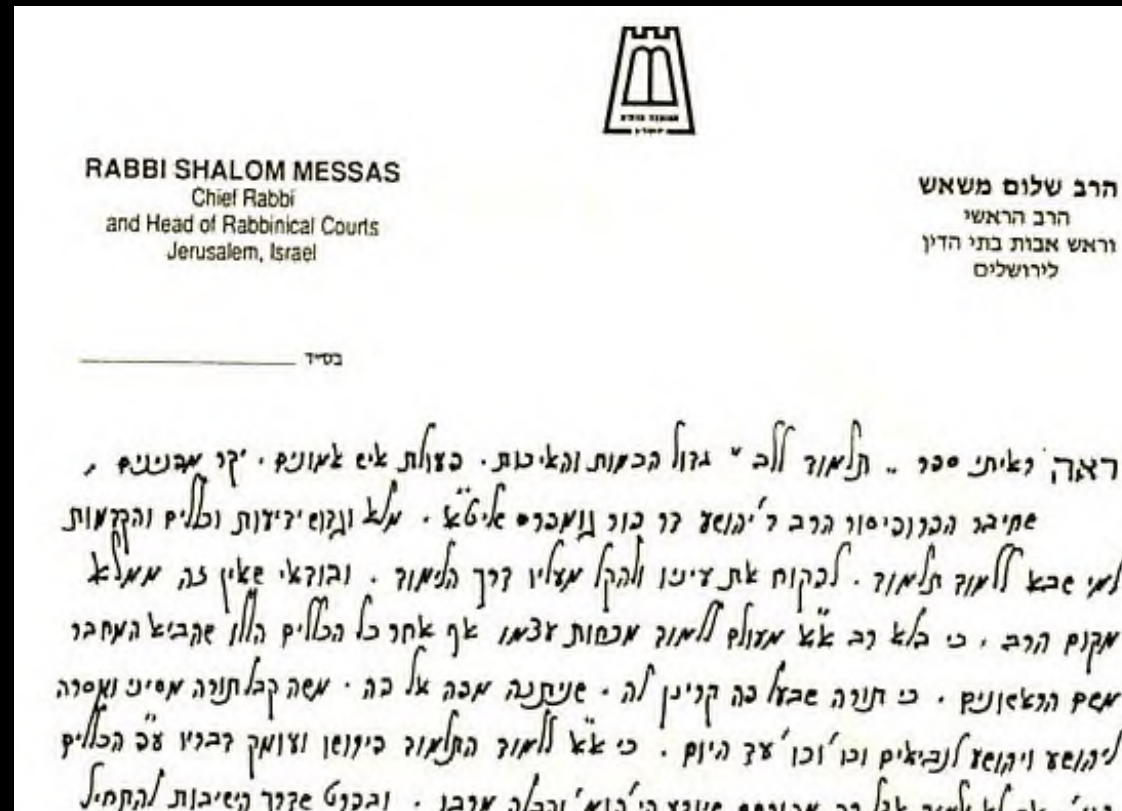 RABBI SHALOM MESSAS
Chief Rabbi
and Head of Rabbinical Courts
Jerusalem, Israel
הרב שלום משאש
הרב הראשי
וראש אבות בתי הדין
לירושלים
בס״ד
ראה ראיתי ספר ״ תלמוד ללב ״ גדול הכמות והאיכות. פעולת איש אמונים. יקר מפנינים,
שחיבר הפרופיסור הרב ר' יהושע בר שליט״א. מלא וגדוש ידיעות וכללים והקדמות
למי שבא ללמוד תלמוד. לפקוח את עינינו ולהקל מעליו דרך הלימוד. ובודאי שאין זה ממלא
מקום הרב, כי בלא רב א״א מעולם ללמוד מכחות עצמו אף אחר כל הכללים הללו שהביא המחבר
משם הראשונים. כי תורה שבעל פה קרינן לה. שניתנה מפה אל פה. משה קבל תורה מסיני ומסרה
ליהושע ויהושע לנביאים וכו' וכו' עד היום. כי א״א ללמוד התלמוד בפירושו ועומק דבריו ע״פ הכללים
לא אצל רב שיודע מרבו. ובפרט שדרך הישיבות להתחיל